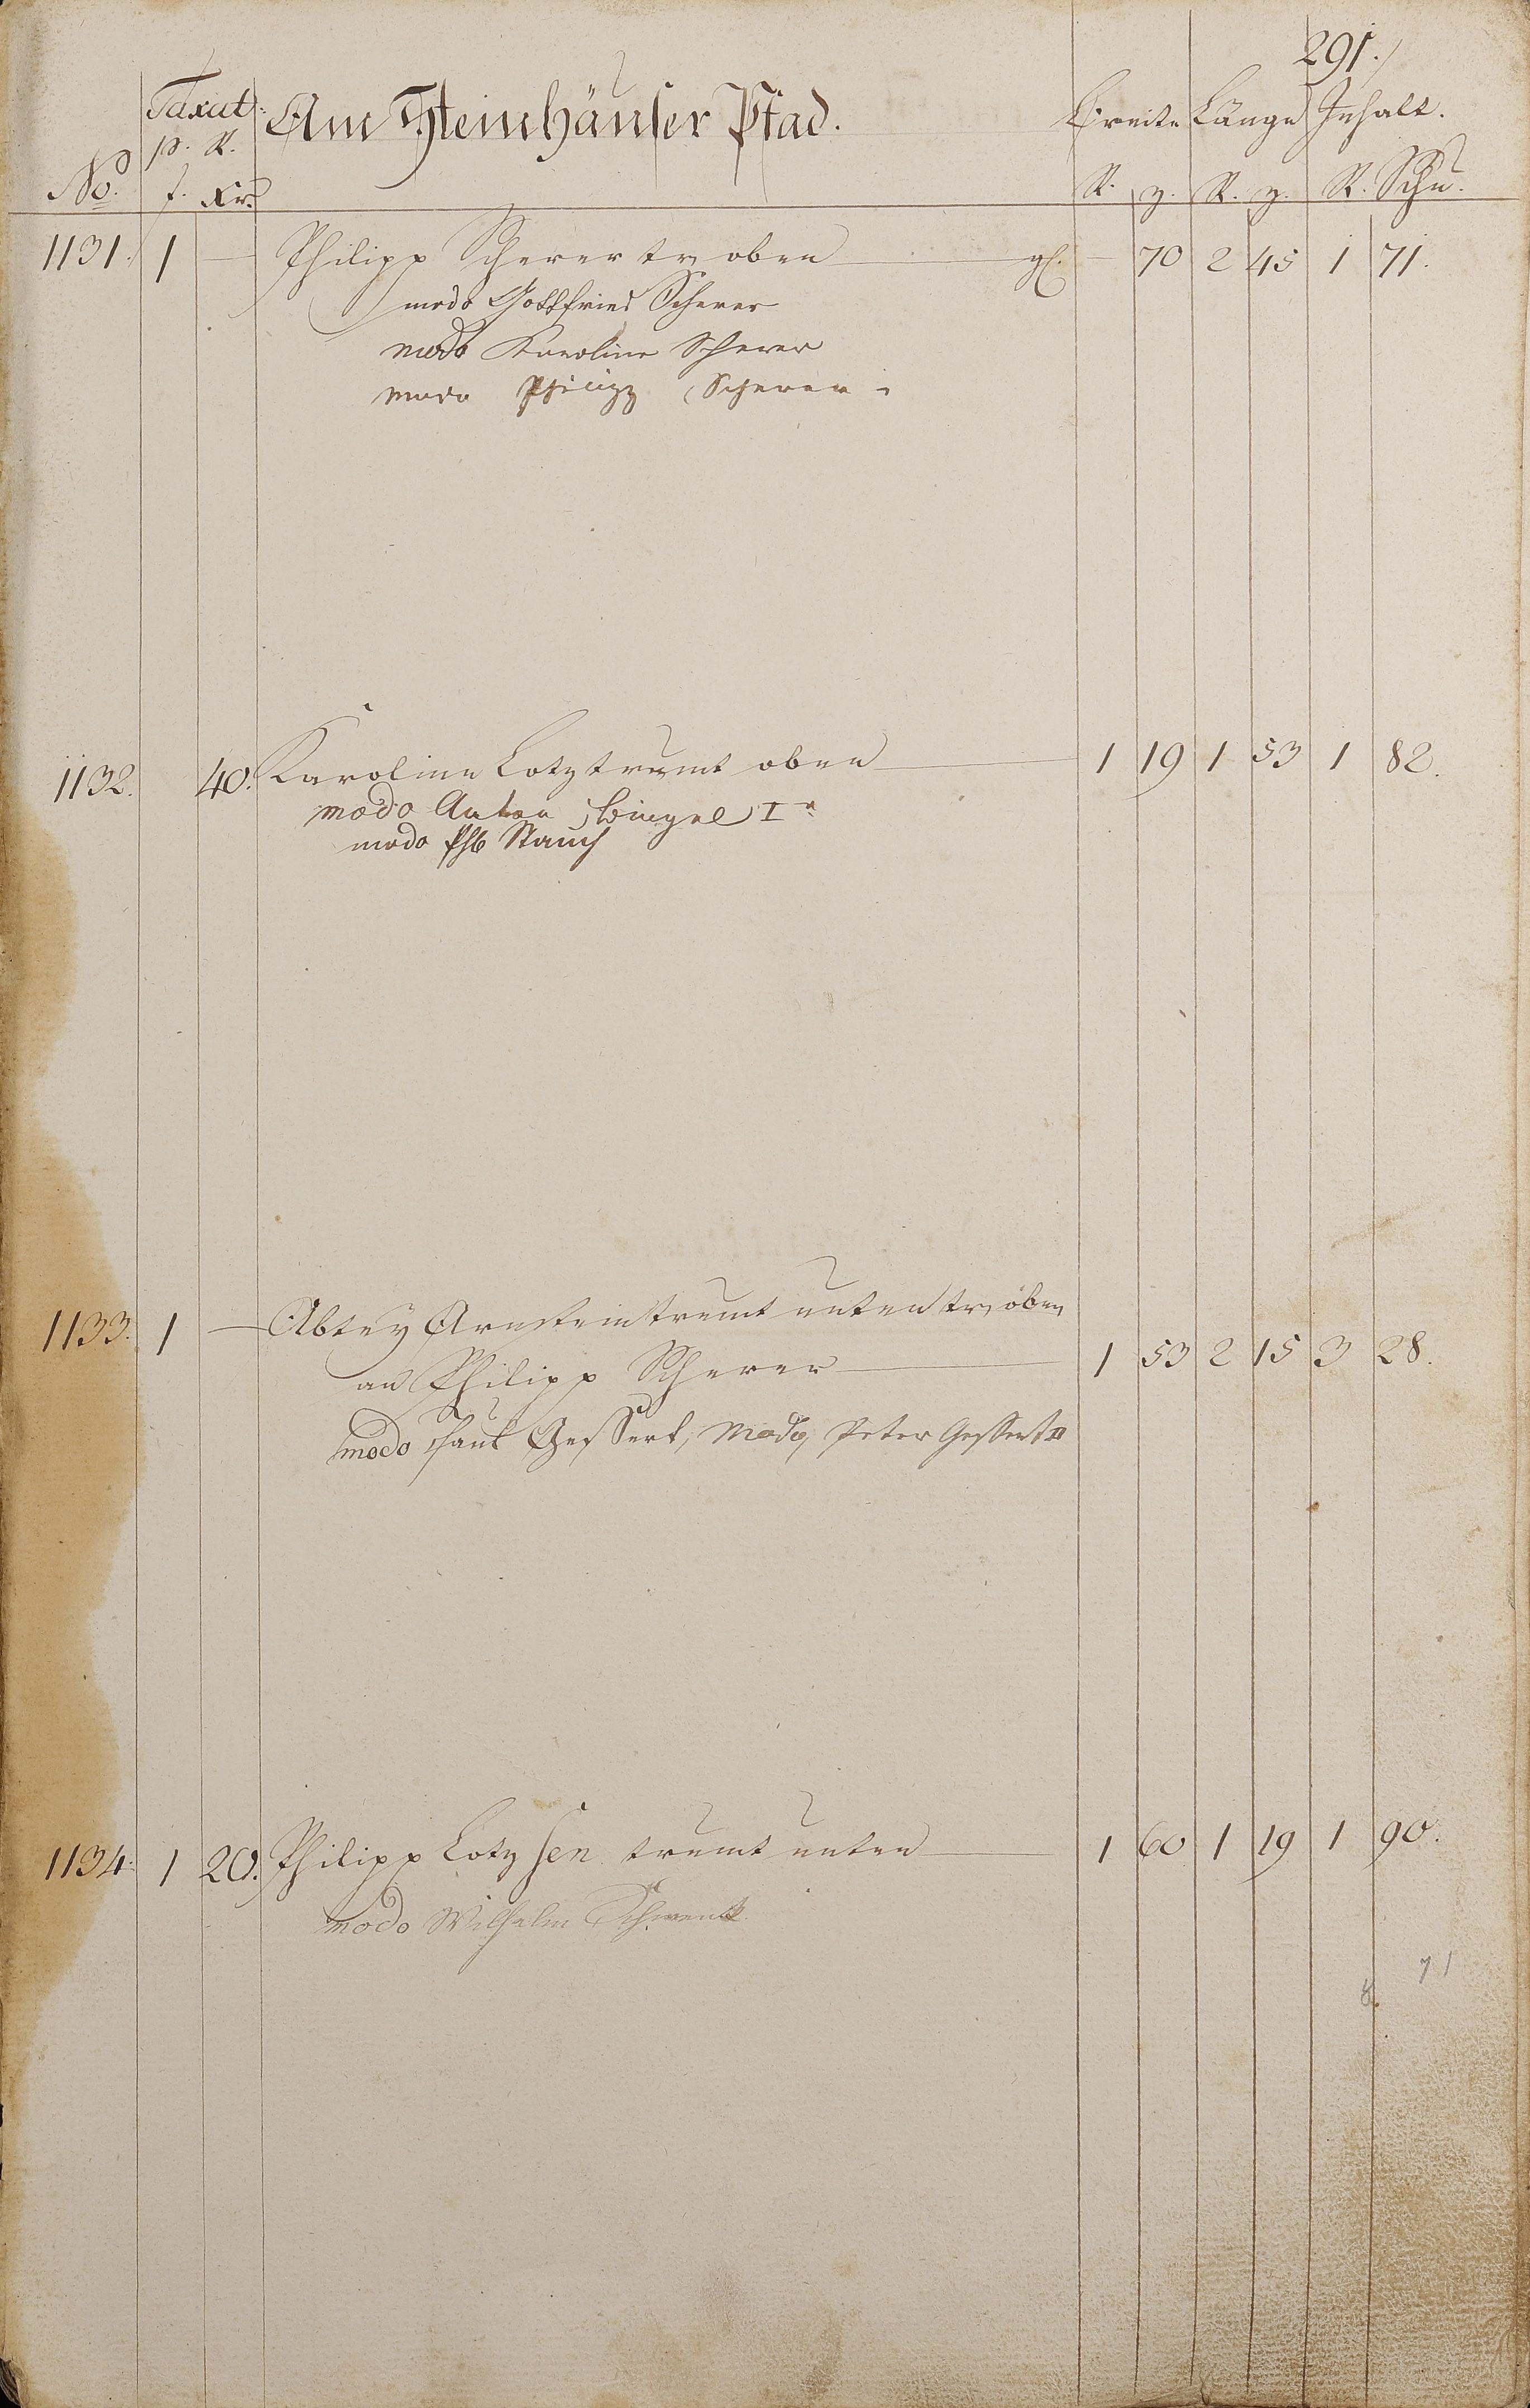 291.
Taxat. Am Steinhäuser Pfad. Breite Länge Inhalt.
p. R.
No. f. Xr. R. z. R. z. R. Schu.
1131. 1 — Philipp Scherer tr. oben — gl. — 70 2 45 1 71.
modo Gottfried Scherer
modo Karoline Scherer
modo Philipp Scherer
1132. 40. Karoline Lotz trumt oben — 1 19 1 53 1 82.
modo Anton Bingel I
modo Phb Stauch
1133. 1 — Abtey Arnstein trumt unten tr. oben
an Philipp Scherer — 1 53 2 15 3 28.
modo Gessert, Modo, Peter Gessert II
1134. 1 20. Philipp Lotz sen trumt unten — 1 60 1 19 1 90.
modo Wilhelm Schwenk
71
8.